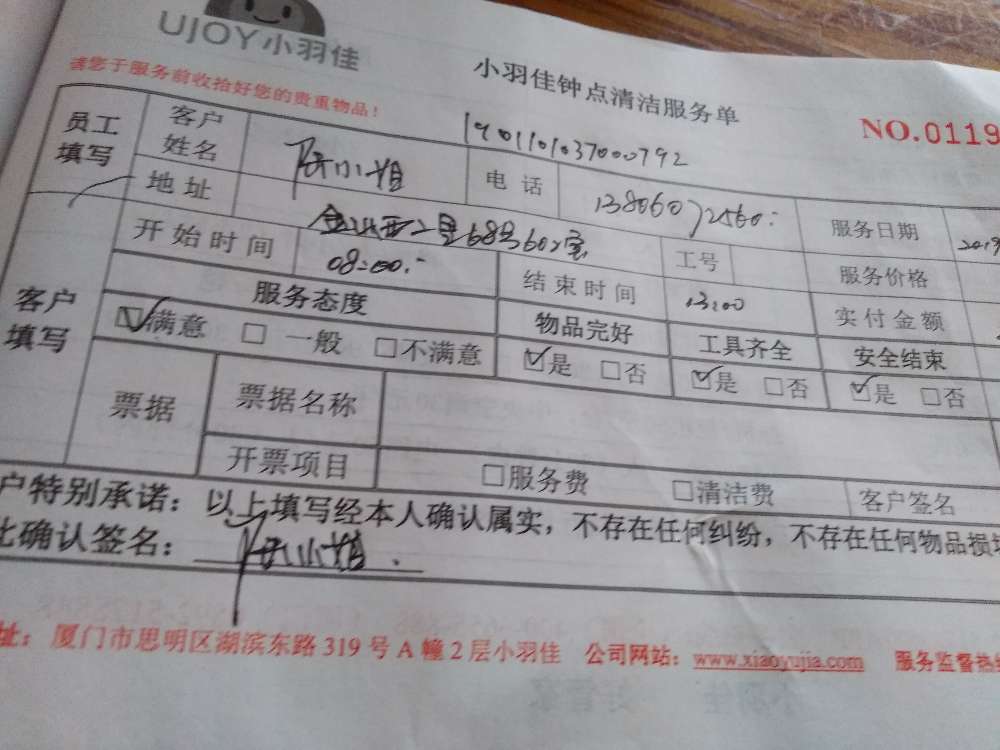 UJOY小羽佳
小羽佳钟点清洁服务单
请您于服务前收拾好您的贵重物品！
NO.0119
1901101037000792
员工填写
客户姓名
小姐
电话
13806072560
服务日期
2019
地址
金山西二里68号602室
工号
服务价格
客户填写
开始时间
08:00
结束时间
13:00
实付金额
服务态度
物品完好
工具齐全
安全结束
☑满意 □ 一般 □不满意
☑是 □否
☑是 □否
☑是 □否
票据
票据名称
开票项目
□服务费 □清洁费
客户签名
户特别承诺：以上填写经本人确认属实，不存在任何纠纷，不存在任何物品损
此确认签名：
小姐
址：厦门市思明区湖滨东路 319 号 A 幢 2 层小羽佳 公司网站：www.xiaoyujia.com 服务监督热